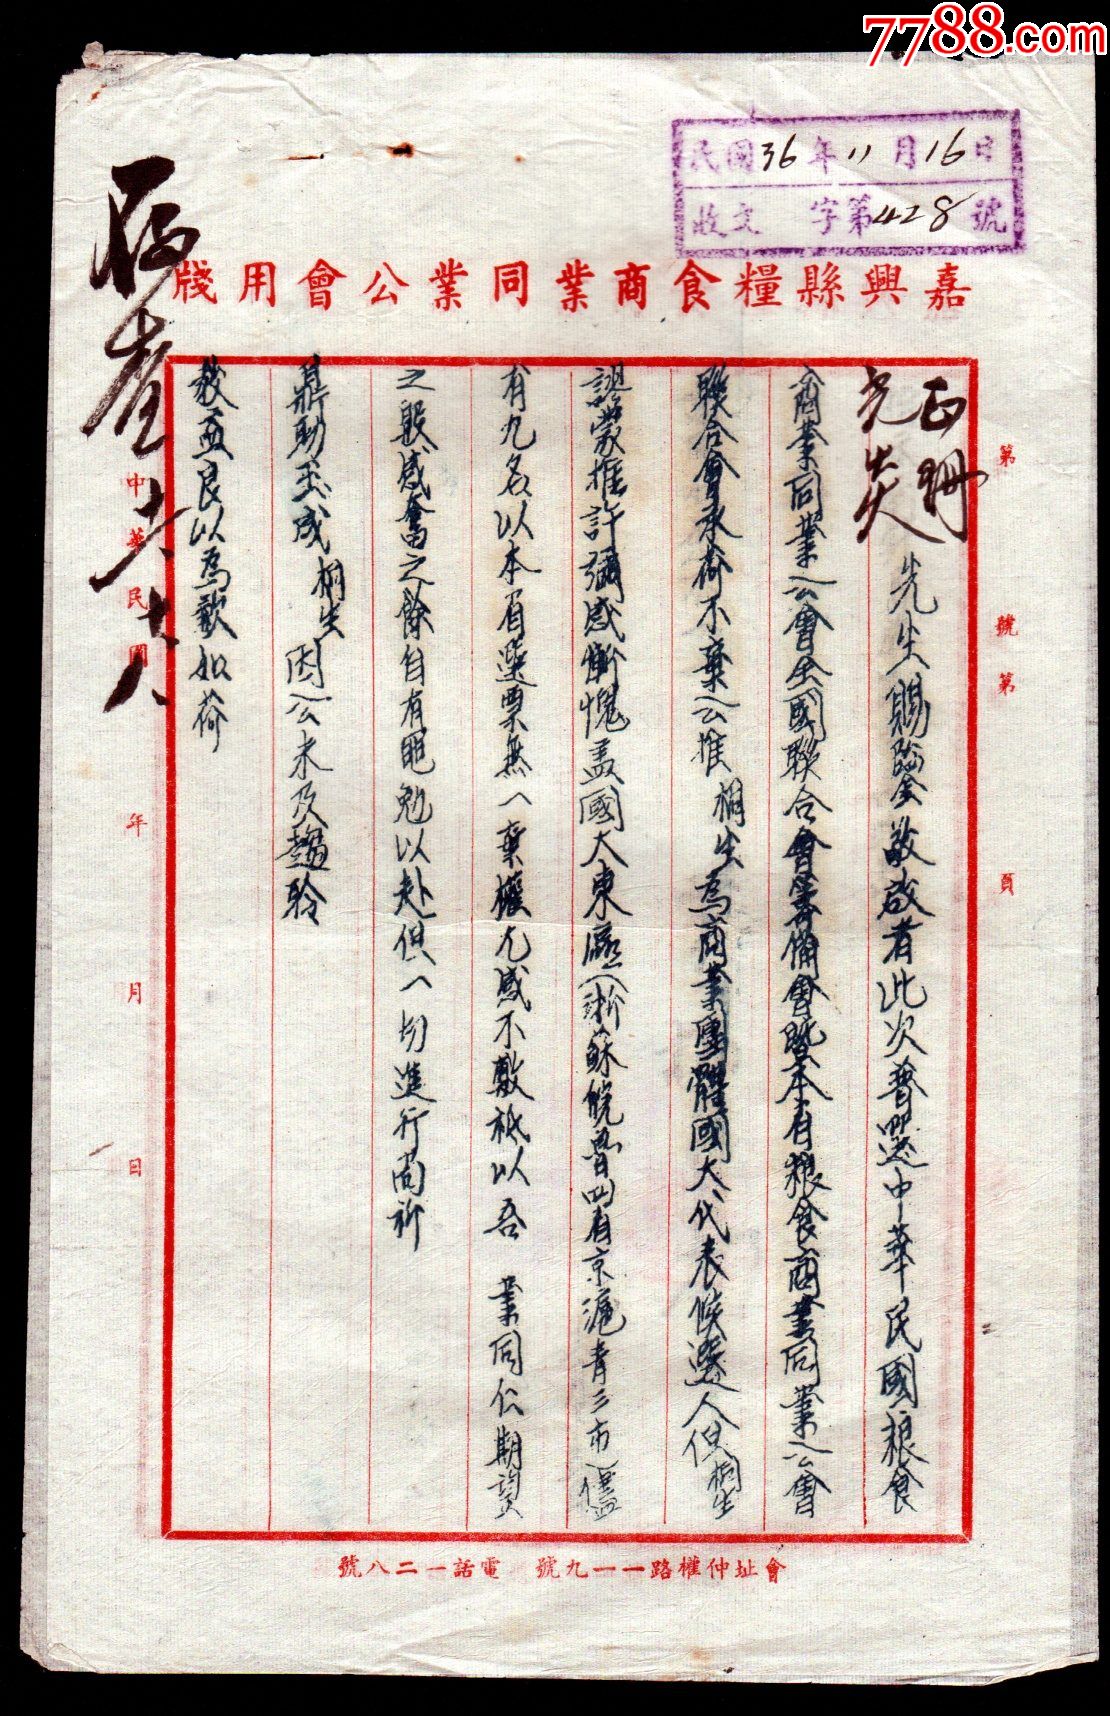 7788.com
民國36年11月16日
收文 字第428號
嘉興縣糧食商業同業公會用牋
第 號 第 頁
正冊
堯炎 先生賜鑒敬啟者此次普選中華民國粮食
商業同業公會全國聯合會籌備會暨本省粮食商業同業公會
聯合會承荷不棄公推 桐生 為商業團體國大代表候選人但桐生
謬蒙推許彌感慚愧盖國大東區(浙蘇皖魯四省京滬青三市)僅
有九名以本省選票無一棄權尤感不敷祇以吾 業同仁期望
之殷感奮之餘自有黽勉以赴但一切進行尚祈
鼎助玉成 桐生 因公未及趨聆
教益良以為歉如荷
中華民國 年 月 日
會址仲權路一一九號 電話一二八號